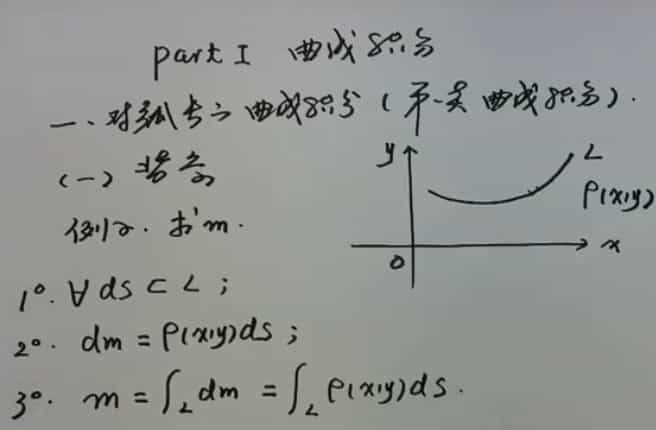 part I 曲线积分
一、对弧长之曲线积分(第一类曲线积分).
(一)背景
例1. 求m.
y
L
ρ(x,y)
x
0
1°. ∀ds⊂L;
2°. dm=ρ(x,y)ds;
3°. m=∫_L dm=∫_L ρ(x,y)ds.